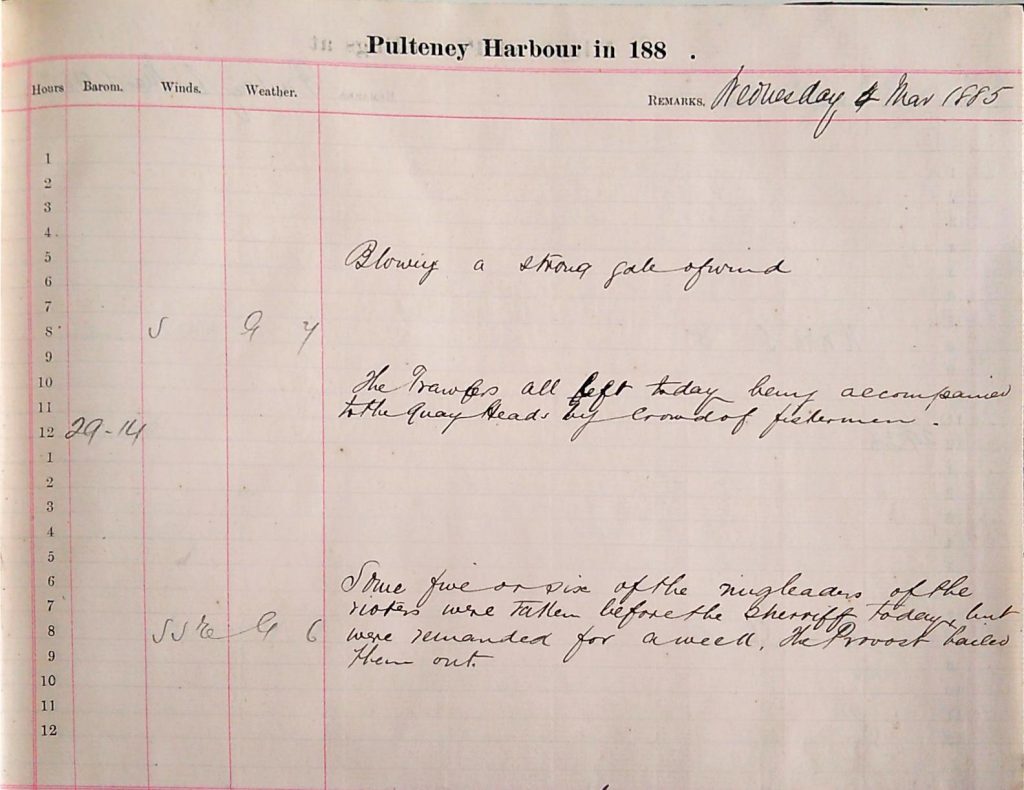 Pulteney Harbour in 188 .
Hours Barom. Winds. Weather. REMARKS. Wednesday 4 Mar 1885
1
2
3
4
5 Blowing a strong gale of wind
6
7
8 S G 7
9
10 The Trawlers all left today being accompanied
11 to the Quay Heads by crowd of fishermen .
12 29-14
1
2
3
4
5
6 Some five or six of the ringleaders of the
7 rioters were taken before the Sherriff today, but
8 SSE G 6 were remanded for a week. The Provost bailed
9 them out.
10
11
12